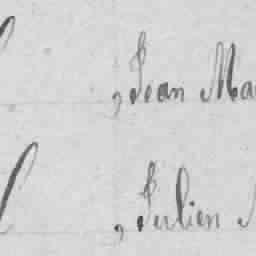 , Jean Ma
, Julien